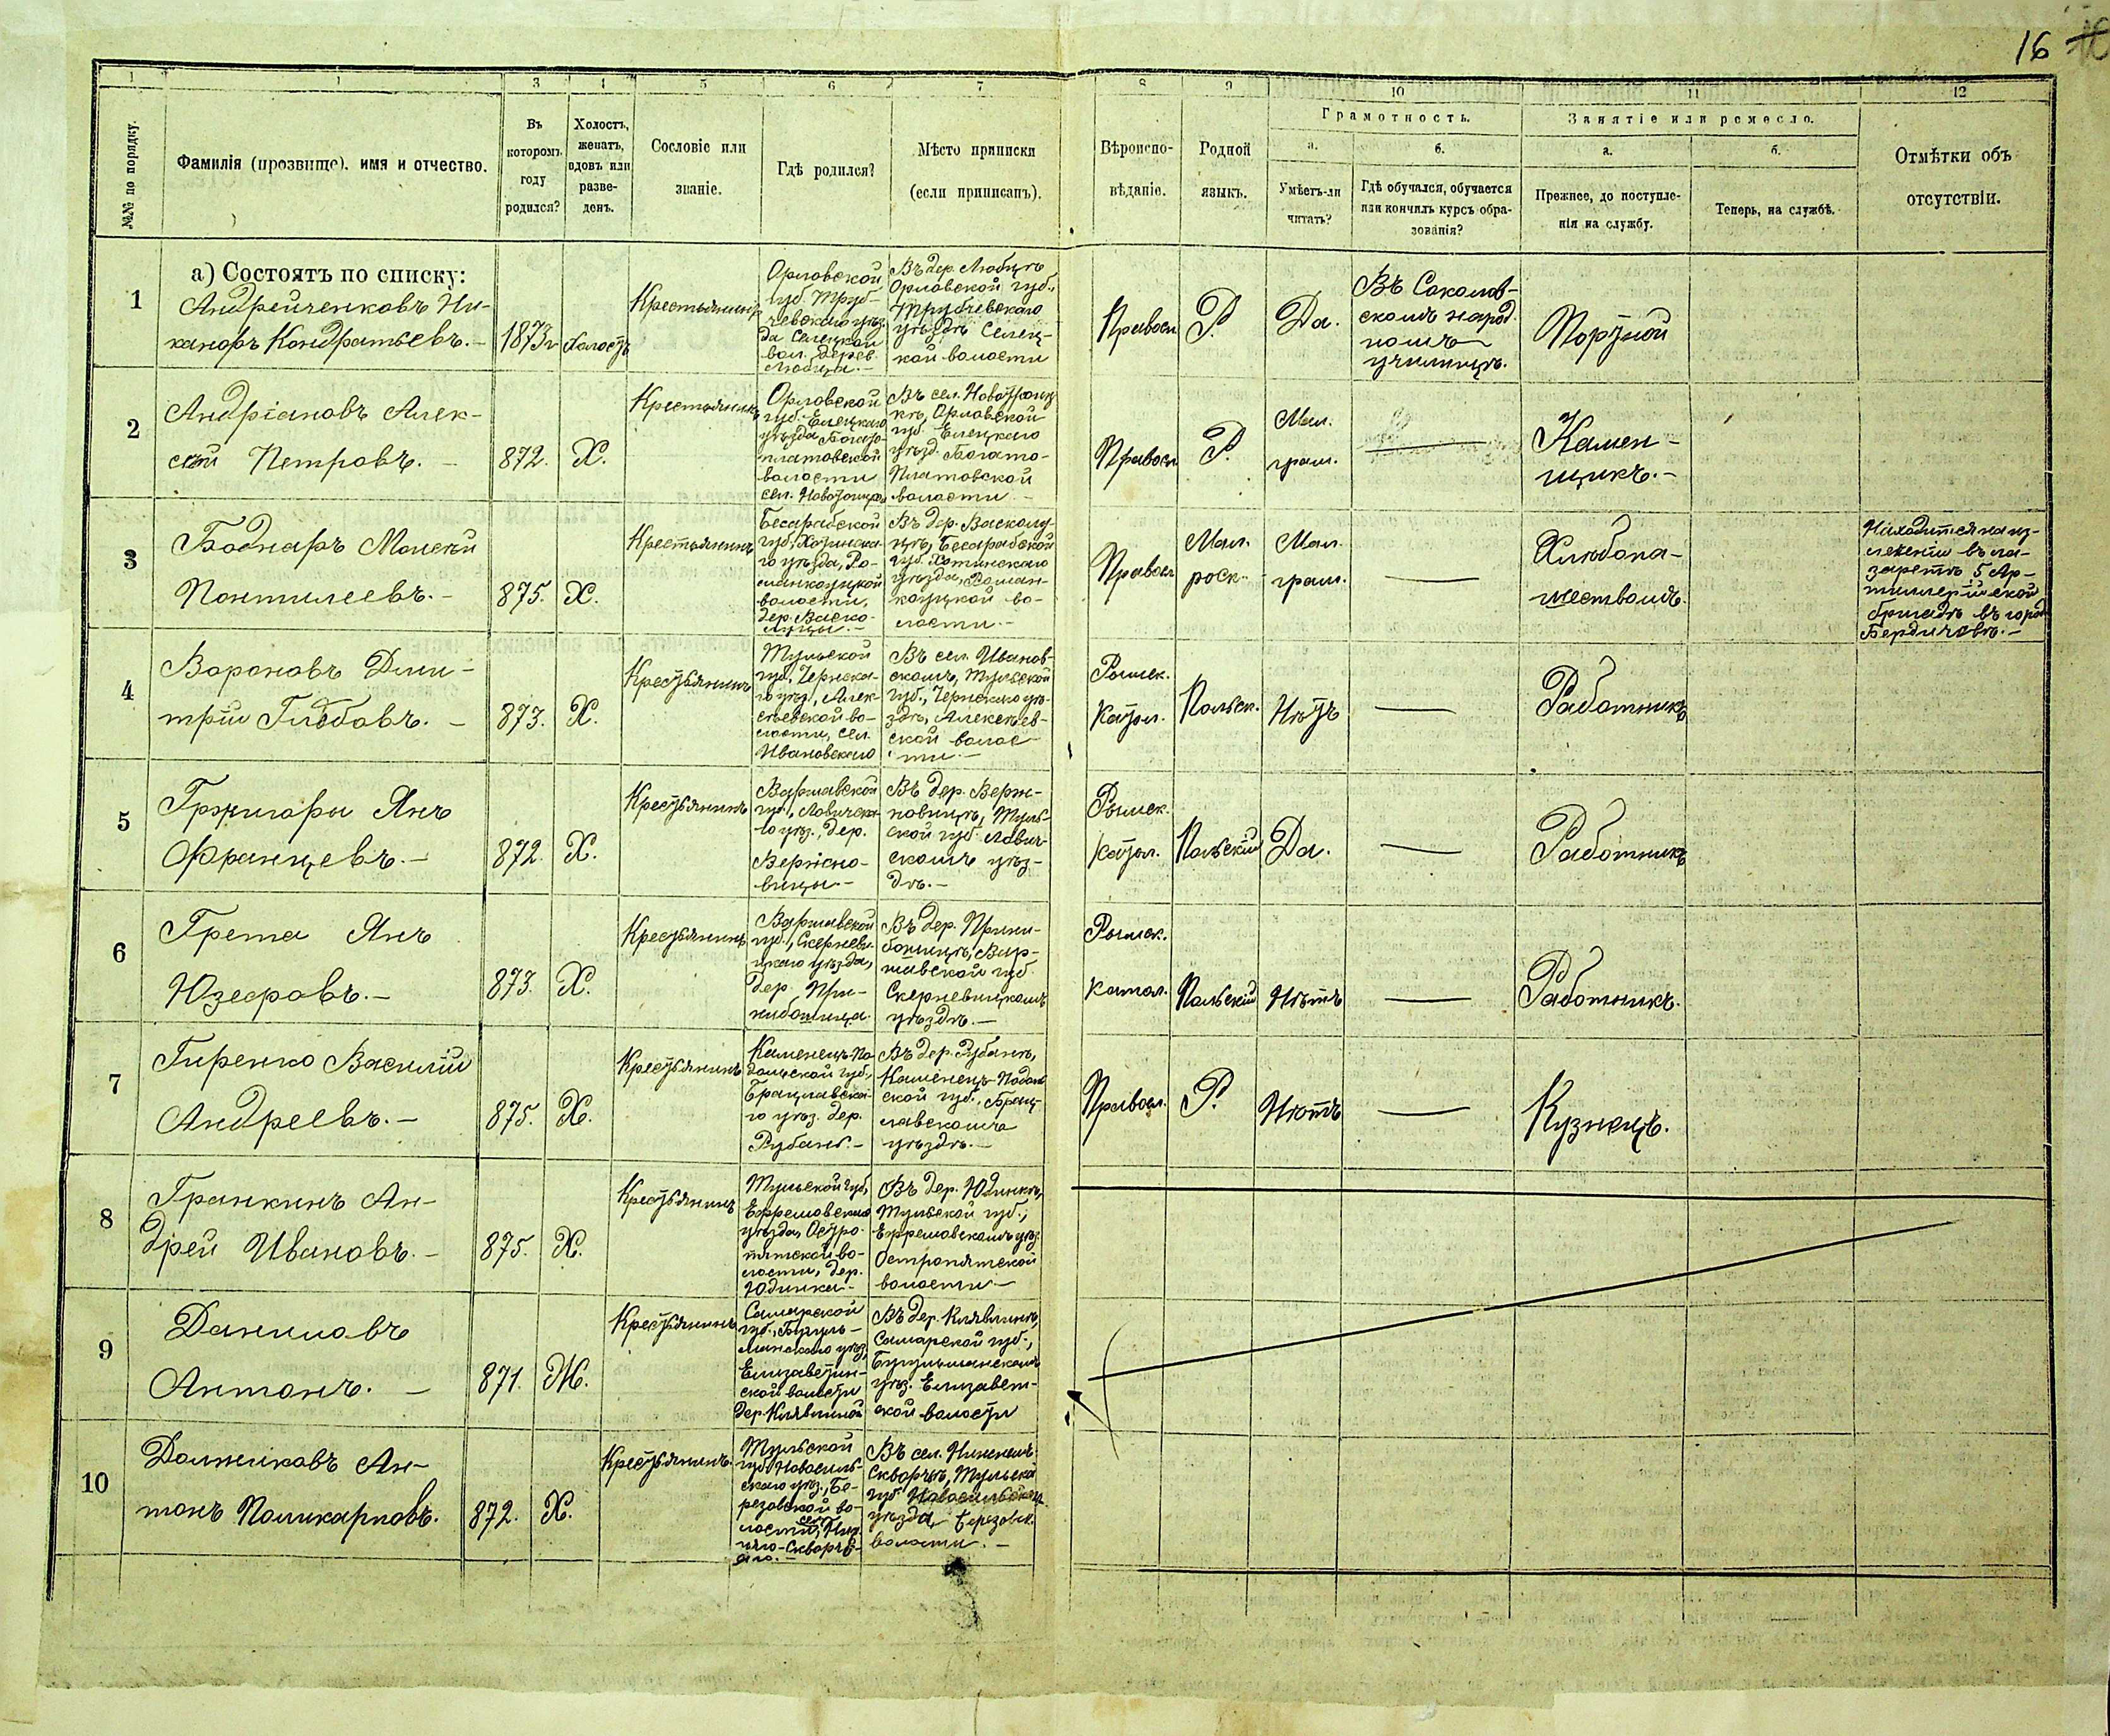 16
1 1 3 4 5 6 7 8 9 10 11 12
№№ по порядку.
Фамилія (прозвище), имя и отчество.
Въ
которомъ
году
родился?
Холостъ,
женатъ,
вдовъ или
разве-
денъ.
Сословіе или
званіе.
Гдѣ родился?
Мѣсто приписки
(если приписанъ).
Вѣроиспо-
вѣданіе.
Родной
языкъ.
Грамотность.
а.
Умѣетъ-ли
читать?
б.
Гдѣ обучался, обучается
или кончилъ курсъ обра-
зованія?
Занятіе или ремесло.
а.
Прежнее, до поступле-
нія на службу.
б.
Теперь, на службѣ.
Отмѣтки объ
отсутствіи.
а) Состоятъ по списку:
1
Андрейченковъ Ни-
каноръ Кондратьевъ.-
1873г
Холостъ
Крестьянинъ
Орловской
губ. Труб-
чевскаго уѣз-
да Селецкой
вол. дерев.
Любцы.-
Въ дер. Любцѣ
Орловской губ.,
Трубчевскаго
уѣздѣ Селец-
кой волости
Правосл
Р.
Да.
Въ Соколов-
скомъ народ.
номъ
училищѣ.
Портной
2
Андріановъ Алек-
сѣй Петровъ. -
872.
Х.
Крестьянинъ
Орловской
губ. Елецкаго
уѣзда Богато-
платовской
волости
Въ сел.
Орловской
губ. Елецкаго
уѣзд. Богато-
Платовской
волости -
Правосл
Р.
Мал.
грам.
Камен-
щикъ.-
3
Боднаръ Моисей
Понтилеевъ.-
875.
Х.
Крестьянинъ
Бесарабской
губ., Хотинска-
го уѣзда, Ро-
манкоуцкой
волости,
дер. Васко-
луцы.-
Въ дер. Васколу-
цѣ, Бесарабской
губ. Хотинскаго
уѣзда, Роман-
коуцкой во-
лости.-
Правосл
Мал.
росс.
Мал.
грам.
Хлѣбопа-
шествомъ.
Находится на из-
леченіи въ ла-
заретѣ 5 Ар-
тиллерійской
бригадѣ въ город
Бердичевѣ.-
4
Вороновъ Дми-
трій Глѣбовъ. -
873.
Х.
Крестьянинъ
Тульской
губ., Чернска-
го уѣз., Алек-
сѣевской во-
лости, сел.
Ивановскаго
Въ сел. Иванов-
скомъ, Тульской
губ., Чернскаго уѣ-
здѣ, Алексѣев-
ской волос-
ти.-
Римск.
Катол.
Польск.
Нѣтъ
Работникъ
5
Гржигоры Янъ
Францевъ.-
872.
Х.
Крестьянинъ
Варшавской
губ., Ловичска-
го уѣз. дер.
Вержно-
вицы-
Въ дер. Верж-
новицѣ, Туль-
ской губ. Лович-
скомъ уѣз-
дѣ.-
Римск.
Катол.
Польскій
Да.
Работникъ
6
Грета Янъ
Юзефовъ.-
873.
Х.
Крестьянинъ
Варшавской
губ., Скерневи-
цкаго уѣзда,
дер. При-
Въ дер.
Вар-
шавской губ
Скерневицкомъ
уѣздѣ.-
Римск.
Катол.
Польскій
Нѣтъ
Работникъ.
7
Гиренко Василій
Андреевъ.-
875.
Х.
Крестьянинъ
Каменецъ-По-
дольской губ.,
Брацлавска-
го уѣз. дер.
Рубань.-
Въ дер. Рубанѣ,
Каменецъ-Подоль
ской губ., Брац-
лавскомъ
уѣздѣ.-
Правосл.
Р.
Нѣтъ
Кузнецъ.
8
Гранкинъ Ан-
дрей Ивановъ.-
875.
Х.
Крестьянинъ
Тульской губ.,
Ефремовскаго
уѣзда, Остро-
пятской во-
лости, дер.
Юдинка-
Въ дер. Юдинкѣ,
Тульской губ.,
Ефремовскомъ уѣз.
Остропятской
волости-
9
Даниловъ
Антонъ. -
871.
Ж.
Крестьянинъ
Самарской
губ., Бугуль-
минскаго уѣз.
Елизаветин-
ской волости
дер. Клявлиной
Въ дер. Клявлинѣ,
Самарской губ.,
Бугульминскомъ
уѣз. Елизавет-
ской волости
10
Должиковъ Ан-
тонъ Поликарповъ.
872.
Х.
Крестьянинъ.
Тульской
губ. Новосиль-
скаго уѣз., Бе-
резовской во-
лости, село Ниж-
няго-Скворче-
аго.-
Въ сел. Нижнемъ
Скворчѣ, Тульской
губ. Новосильскаго
уѣзда, Березовск.
волости.-